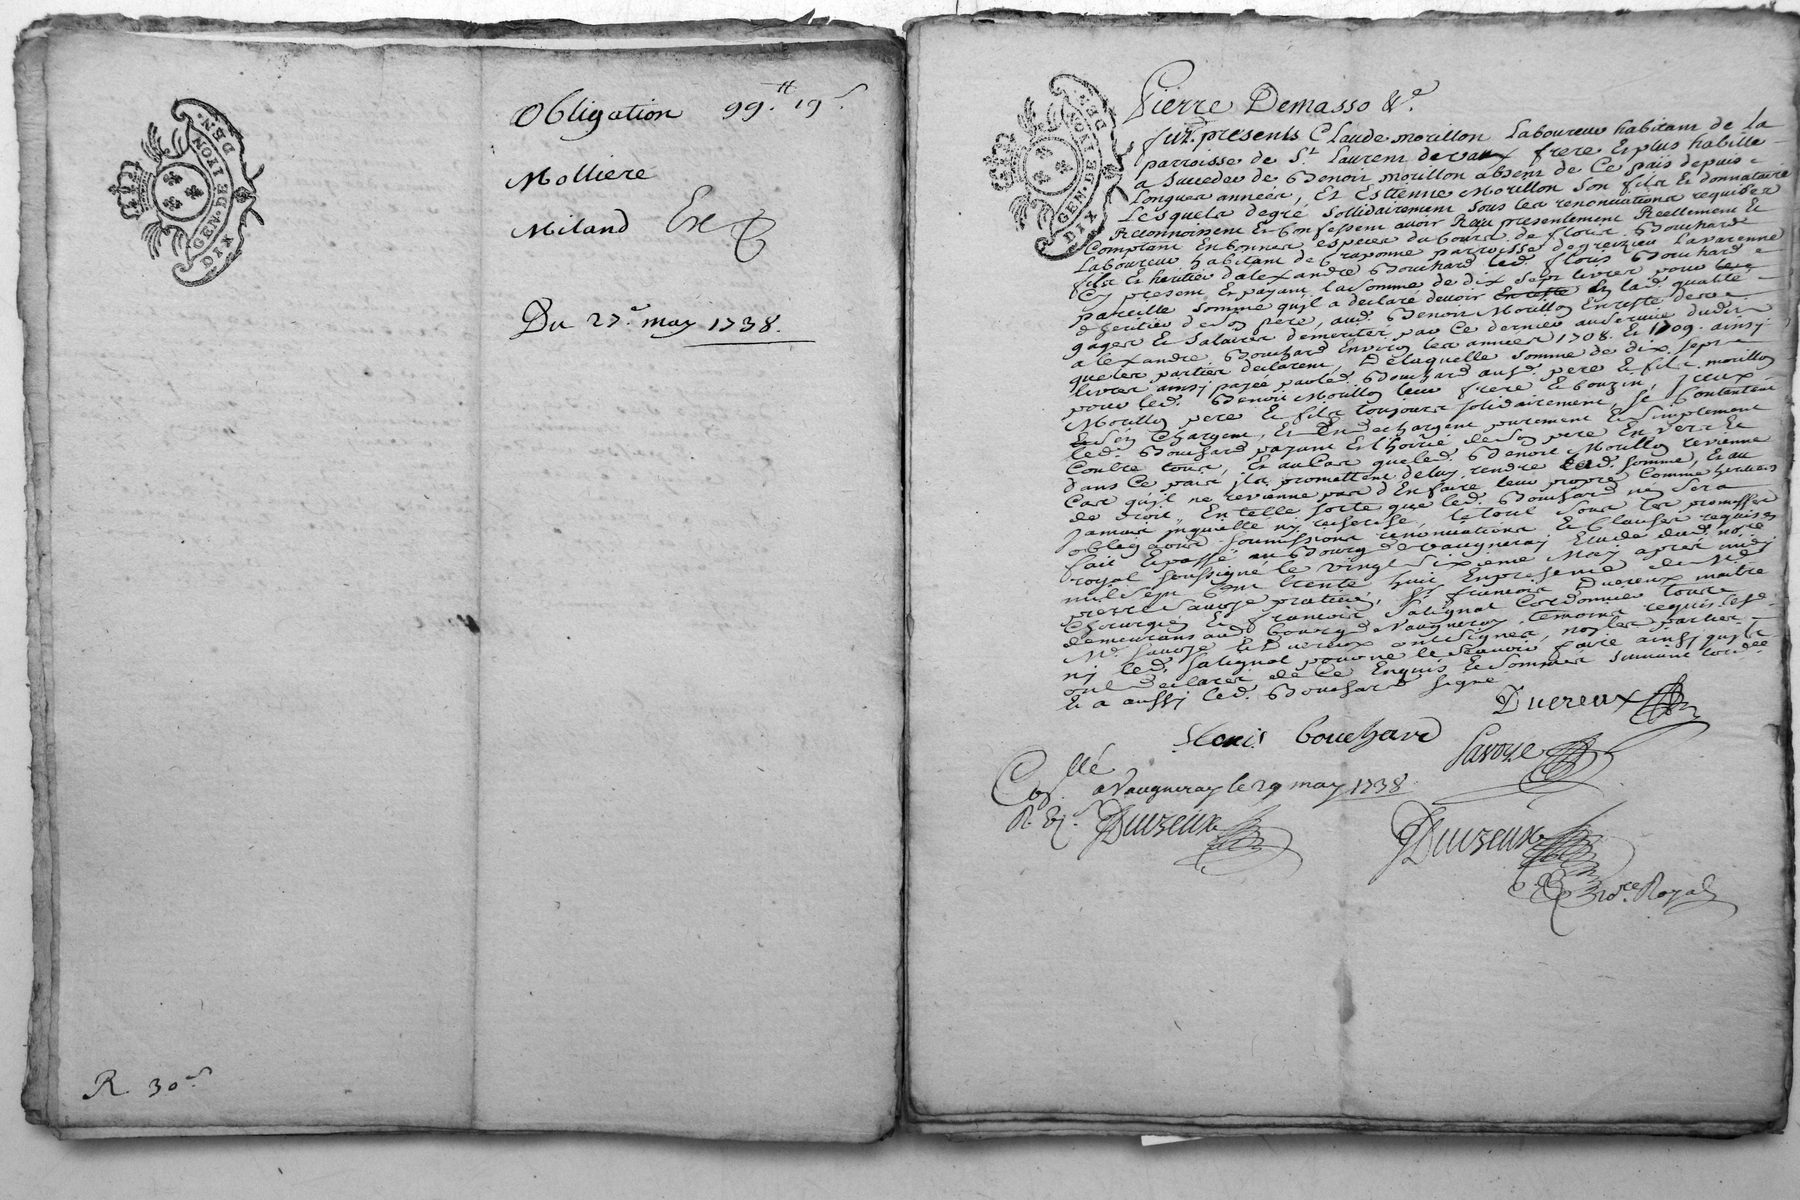 GEN. DE LYON
DIX DEN.
Obligation 99.tt 19.s
Molliere
Miland Ex
Du 27.e may 1738.
R. 30.s
GEN. DE LYON
DIX DEN.
Pierre Demasso &.a
furt presents Claude morillon Laboureur habitant de La
parroisse de St. Laurent devaux frere Et plus habille
a Succeder de Benoit morillon absent de Ce pais depuis
Longues années, Et Estienne Morillon Son fils Et donnataire
Lesquels degré Sollidairement Sous les renonciations requises
Reconnoissent Et Confessent avoir Reçu presentement Reellement Et
Comptant En bonnes especes du Cours de floris Bouchard
Laboureur habitant de Craponne parroisse de grezieu Lavarenne
fils Et heritier d'alexandre Bouchard led. floris Bouchard
Cy present Et payant La Somme de dix Sept livres pour
pareille Somme qu'il a declaré devoir En reste En lad. qualité
d'heritier de Son pere, aud. Benoit Morillon En reste de ses
gages Et Salaires demerites par Ce dernier au Service dudit
alexandre Bouchard Environ les années 1708. Et 1709. ainsy
que les parties declarent, De laquelle Somme de dix Sept
livres ainsy payée par led. Bouchard ausd. pere Et fils morillon
pour led. Benoit Morillon leur frere Et Couzin, Iceux
Morillon pere Et fils toujours Solidairement, Se Contentent
Et S'en Chargent, Et En dechargent purement Et Simplement
led. Bouchard payant Et L'hoirie de Son pere Envers Et
Contre tous, Et au Cas que led. Benoit Morillon revienne
dans Ce pais ils promettent de luy rendre lad. Somme, Et au
Cas qu'il ne revienne pas d'En faire leur propre Comme heritiers
de droit, En telle Sorte que led. Bouchard n'en Sera
Jamais inquietté ny recherché, le tout Sous les promesses
obligations Soumissions renonciations Et Clauses requises
fait Et passé au Bourg de Vaugneray Etude dud. no.re
royal Soussigné le vingt Sixieme May apres midy
mil Sept Cent trente huit En presence de Me
pierre Savoye praticien, Sr. francois Duereux maitre
Chirurgien Et francois Salignat Cordonnier tous
demeurans aud. bourg de Vaugneray, temoins requis lesd.
Mrs. Savoye Et Duereux ont Signés, non les parties
ny led. Salignat pour ne le Scavoir faire ainsy qu'ils
ont declarés de Ce Enquis Et Sommés Suivant l'ord.ce
Et a aussy led. Bouchard Signé
Duereux
floris bouchard
Savoye
Con.llé
a Vaugneray le 29 may 1738
R.
Duereux
Duereux
no.re Royal